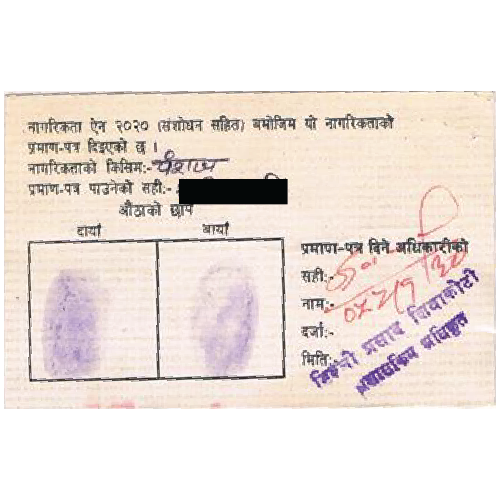 नागरिकता ऐन २०२० (संशोधन सहित) बमोजिम यो नागरिकताको
प्रमाण-पत्र दिइएको छ ।
नागरिकताको किसिम:- वंशज
प्रमाण-पत्र पाउनेको सही:-
औंठाको छाप
दायाँ बायाँ
प्रमाण-पत्र दिने अधिकारीको
सही:-
नाम:-
दर्जा:-
मिति:-
प्रसाद सिवाकोटी
प्रशासकिय अधिकृत